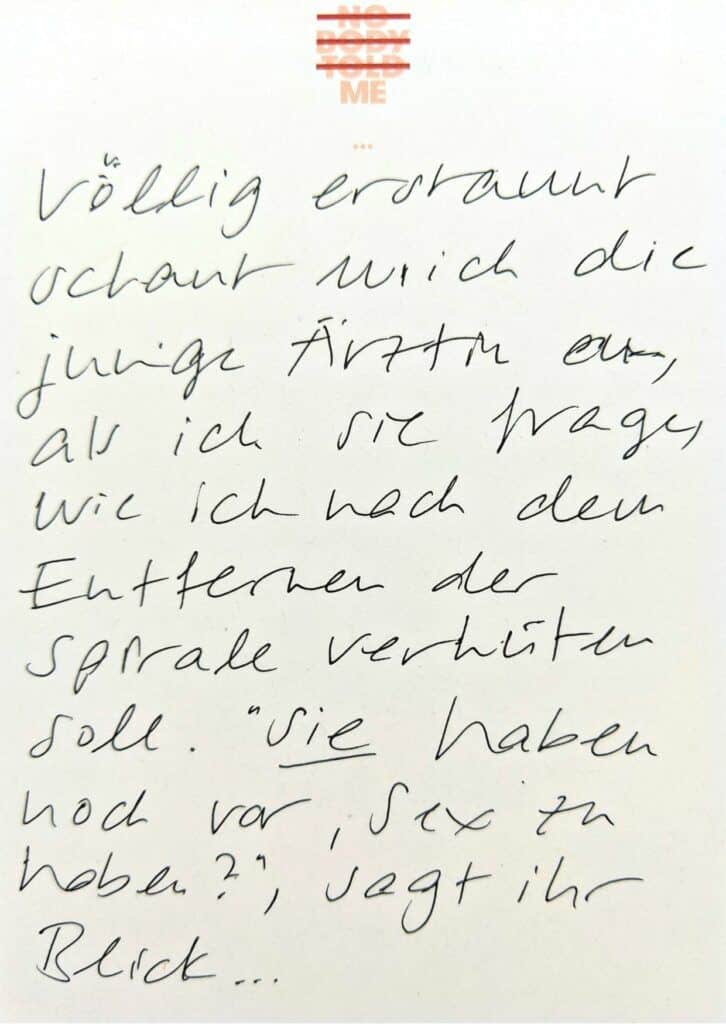 NO
BODY
TOLD
ME
...
Völlig erstaunt
schaut mich die
junge Ärztin an,
als ich sie frage,
wie ich nach dem
Entfernen der
Spirale verhüten
soll. "Sie haben
noch vor, Sex zu
haben?", sagt ihr
Blick...